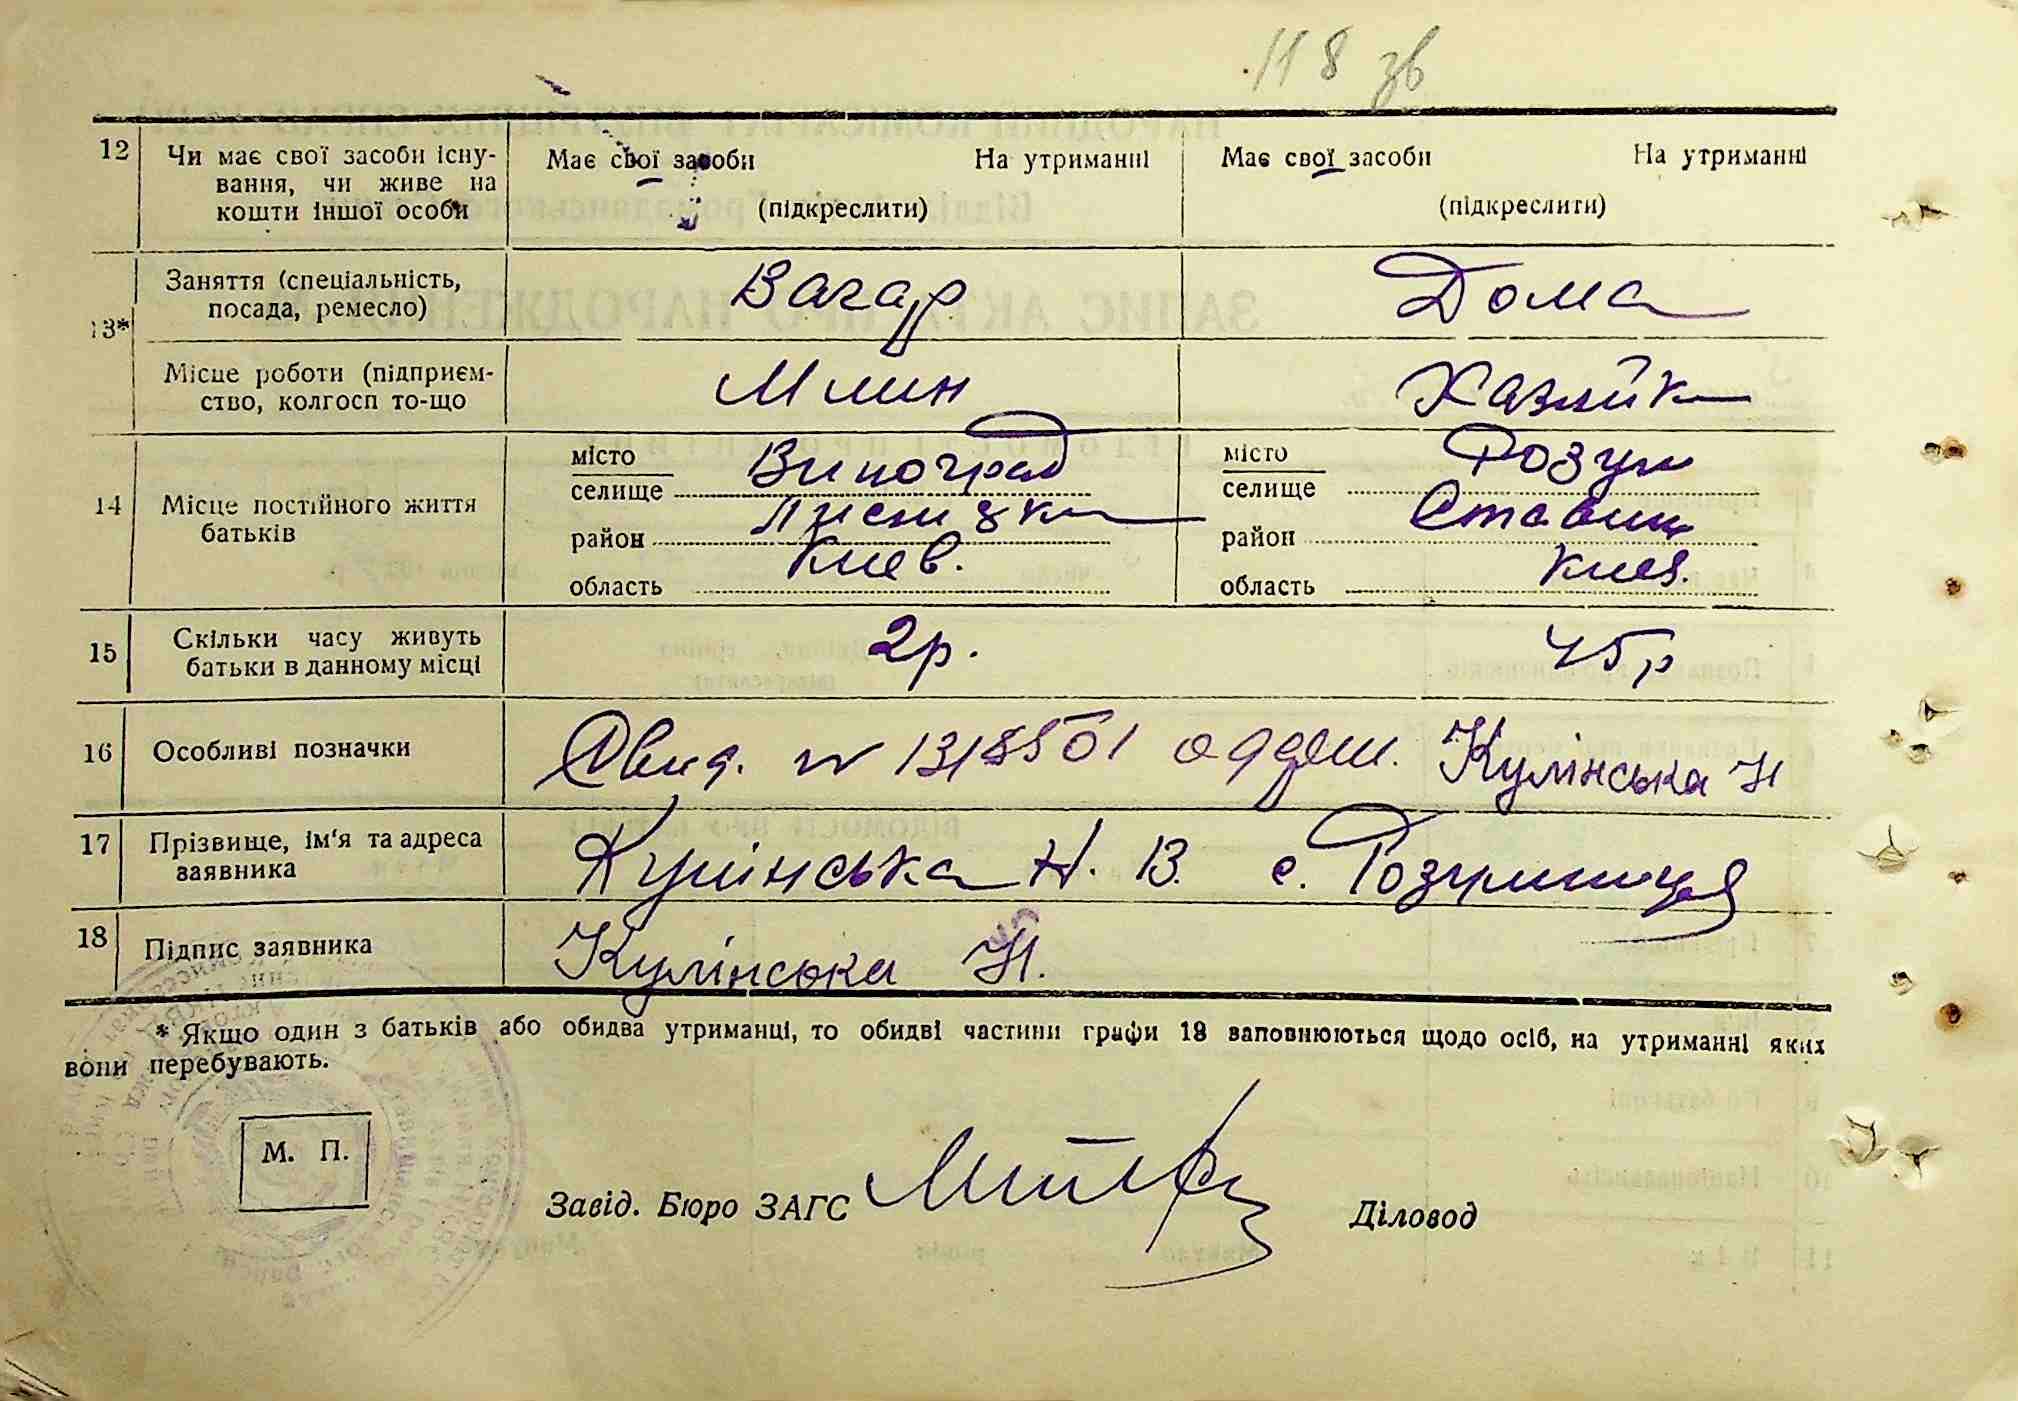 118 зв
12 Чи має свої засоби існу- Має свої засоби На утриманні Має свої засоби На утриманні
вання, чи живе на
кошти іншої особи (підкреслити) (підкреслити)
13* Заняття (спеціальність, Вагар Дома
посада, ремесло)
Місце роботи (підприєм- Млин Хазяйка
ство, колгосп то-що
14 Місце постійного життя батьків
місто Виноград місто Розум
селище селище
район Лисянск район Ставищ
область Киев. область Киев.
15 Скільки часу живуть 2р. 45р
батьки в данному місці
16 Особливі позначки Свид. N 1318501 одерж. Кулінська Н
17 Прізвище, ім'я та адреса Кулінська Н. В. с. Розумниця
заявника
18 Підпис заявника Кулінська Н.
* Якщо один з батьків або обидва утриманці, то обидві частини графи 13 заповнюються щодо осіб, на утриманні яких
вони перебувають.
М. П.
Завід. Бюро ЗАГС Діловод